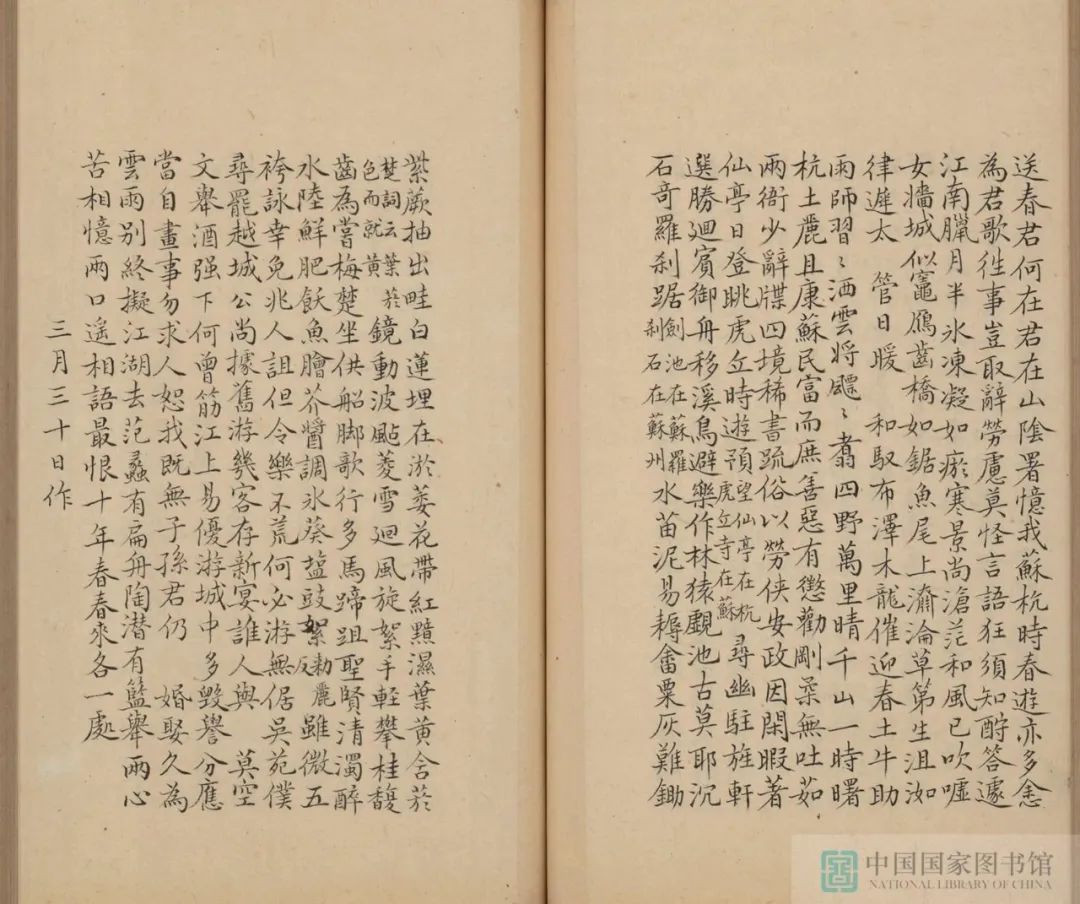 送春君何在君在山陰署憶我蘇杭時春遊亦多念
為君歌徃事豈敢辭勞慮莫怪言語狂須知酧答遽
江南臘月半氷凍凝如瘀寒景尚滄茫和風已吹噓
女墻城似竈鴈齒橋如鋸魚尾上瀹淪草笫生沮洳
律遲太 管日暖 和馭布澤木龍催迎春土牛助
雨師習〻洒雲將飃〻翥四野萬里晴千山一時曙
杭土麗且康蘇民富而庶善惡有懲勸剛柔無吐茹
兩衙少辭牒四境稀書䟽俗以勞俠安政因閑暇著
仙亭日登眺虎丘時遊預望仙亭在杭虎丘寺在蘇尋幽駐旌軒
選勝迴賓御舟移溪鳥避樂作林猿覷池古莫耶沉
石奇羅刹踞劍池在蘇羅刹石在蘇州水苗泥易耨畬粟灰難鋤
紫蕨抽出畦白蓮埋在淤萎花帶紅黯濕葉黄含菸
楚詞云葉菸色而就黄鏡動波颭菱雪迴風旋絮手輕攀桂馥
齒為嘗梅楚坐供船脚歌行多馬蹄跙聖賢清濁醉
水陸鮮肥飫魚膾芥醬調氷葵塩豉絮勑慮反雖微五
袴詠幸免兆人詛但令樂不荒何必游無倨吳苑僕
尋罷越城公尚據舊游幾客存新宴誰人與 莫空
文舉酒强下何曾筯江上易優游城中多毀譽分應
當自畫事勿求人恕我既無子孫君仍 婚娶久為
雲雨別終擬江湖去范蠡有扁舟陶潛有籃舉兩心
苦相憶兩口遥相語最恨十年春春來各一處
三月三十日作
中国国家图书馆
NATIONAL LIBRARY OF CHINA